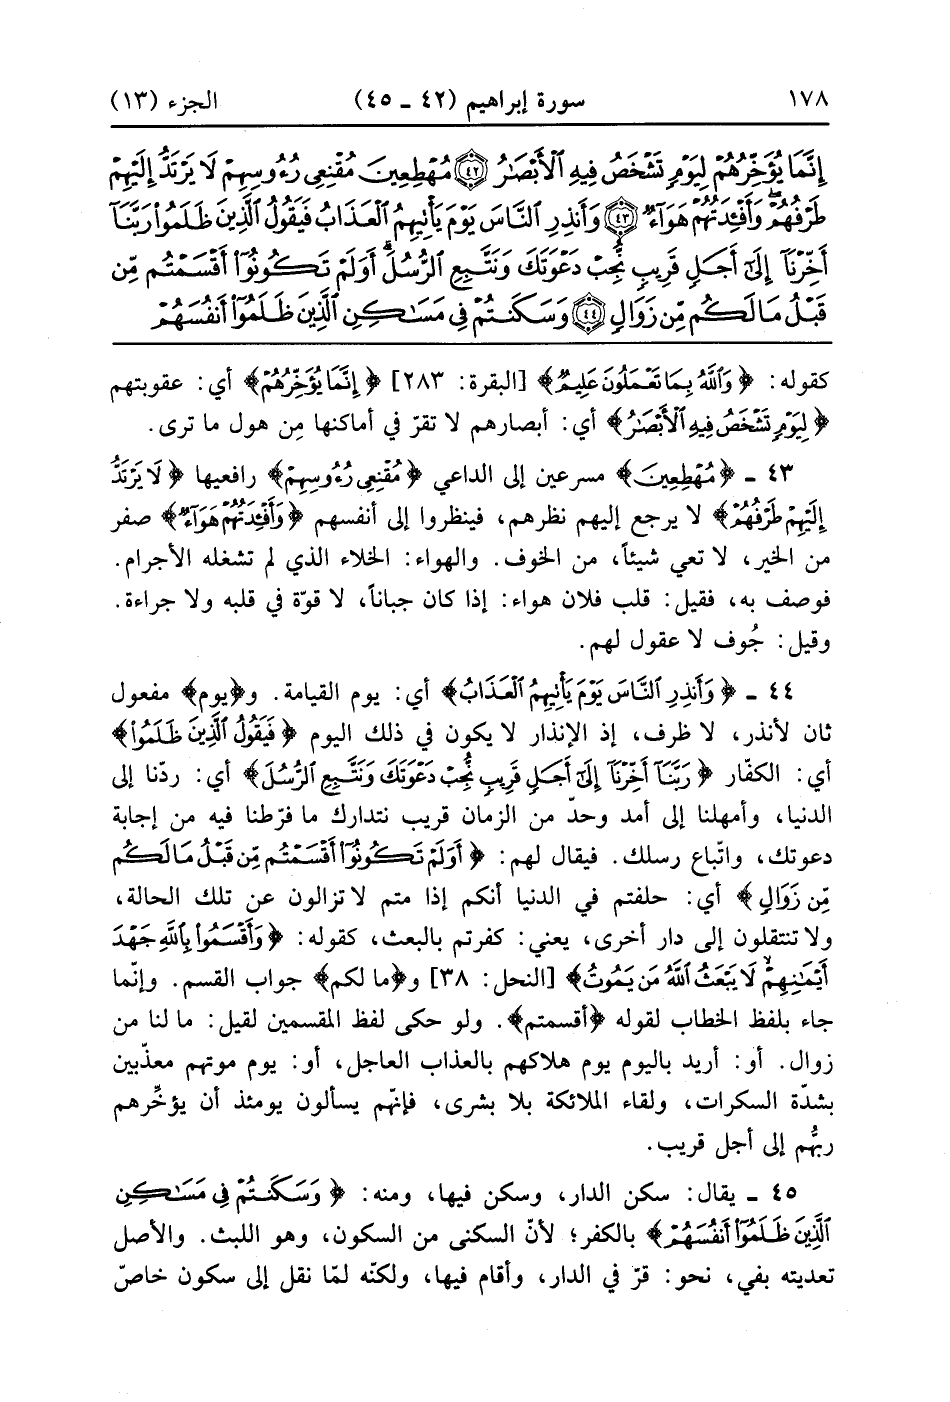 ١٧٨ سورة إبراهيم (٤٢ ـ ٤٥) الجزء (١٣)
إِنَّمَا يُؤَخِّرُهُمْ لِيَوْمٍ تَشْخَصُ فِيهِ الْأَبْصَارُ ﴿٤٢﴾ مُهْطِعِينَ مُقْنِعِي رُءُوسِهِمْ لَا يَرْتَدُّ إِلَيْهِمْ
طَرْفُهُمْ وَأَفْئِدَتُهُمْ هَوَاءٌ ﴿٤٣﴾ وَأَنذِرِ النَّاسَ يَوْمَ يَأْتِيهِمُ الْعَذَابُ فَيَقُولُ الَّذِينَ ظَلَمُوا رَبَّنَا
أَخِّرْنَا إِلَى أَجَلٍ قَرِيبٍ نُّجِبْ دَعْوَتَكَ وَنَتَّبِعِ الرُّسُلَ أَوَلَمْ تَكُونُوا أَقْسَمْتُم مِّن
قَبْلُ مَا لَكُم مِّن زَوَالٍ ﴿٤٤﴾ وَسَكَنتُمْ فِي مَسَاكِنِ الَّذِينَ ظَلَمُوا أَنفُسَهُمْ
كقوله: ﴿وَاللَّهُ بِمَا تَعْمَلُونَ عَلِيمٌ﴾ [البقرة: ٢٨٣] ﴿إِنَّمَا يُؤَخِّرُهُمْ﴾ أي: عقوبتهم
﴿لِيَوْمٍ تَشْخَصُ فِيهِ الْأَبْصَارُ﴾ أي: أبصارهم لا تقرّ في أماكنها مِن هول ما ترى.
٤٣ ـ ﴿مُهْطِعِينَ﴾ مسرعين إلى الداعي ﴿مُقْنِعِي رُءُوسِهِمْ﴾ رافعيها ﴿لَا يَرْتَدُّ
إِلَيْهِمْ طَرْفُهُمْ﴾ لا يرجع إليهم نظرهم، فينظروا إلى أنفسهم ﴿وَأَفْئِدَتُهُمْ هَوَاءٌ﴾ صفر
من الخير، لا تعي شيئاً، من الخوف. والهواء: الخلاء الذي لم تشغله الأجرام.
فوصف به، فقيل: قلب فلان هواء: إذا كان جباناً، لا قوّة في قلبه ولا جراءة.
وقيل: جُوف لا عقول لهم.
٤٤ ـ ﴿وَأَنذِرِ النَّاسَ يَوْمَ يَأْتِيهِمُ الْعَذَابُ﴾ أي: يوم القيامة. و﴿يوم﴾ مفعول
ثان لأنذر، لا ظرف، إذ الإنذار لا يكون في ذلك اليوم ﴿فَيَقُولُ الَّذِينَ ظَلَمُوا﴾
أي: الكفّار ﴿رَبَّنَا أَخِّرْنَا إِلَى أَجَلٍ قَرِيبٍ نُّجِبْ دَعْوَتَكَ وَنَتَّبِعِ الرُّسُلَ﴾ أي: ردّنا إلى
الدنيا، وأمهلنا إلى أمد وحدّ من الزمان قريب نتدارك ما فرّطنا فيه من إجابة
دعوتك، واتّباع رسلك. فيقال لهم: ﴿أَوَلَمْ تَكُونُوا أَقْسَمْتُم مِّن قَبْلُ مَا لَكُم
مِّن زَوَالٍ﴾ أي: حلفتم في الدنيا أنكم إذا متم لا تزالون عن تلك الحالة،
ولا تنتقلون إلى دار أخرى، يعني: كفرتم بالبعث، كقوله: ﴿وَأَقْسَمُوا بِاللَّهِ جَهْدَ
أَيْمَانِهِمْ لَا يَبْعَثُ اللَّهُ مَن يَمُوتُ﴾ [النحل: ٣٨] و﴿ما لكم﴾ جواب القسم. وإنّما
جاء بلفظ الخطاب لقوله ﴿أقسمتم﴾. ولو حكى لفظ المقسمين لقيل: ما لنا من
زوال. أو: أريد باليوم يوم هلاكهم بالعذاب العاجل، أو: يوم موتهم معذّبين
بشدّة السكرات، ولقاء الملائكة بلا بشرى، فإنّهم يسألون يومئذ أن يؤخّرهم
ربُّهم إلى أجل قريب.
٤٥ ـ يقال: سكن الدار، وسكن فيها، ومنه: ﴿وَسَكَنتُمْ فِي مَسَاكِنِ
الَّذِينَ ظَلَمُوا أَنفُسَهُمْ﴾ بالكفر؛ لأنّ السكنى من السكون، وهو اللبث. والأصل
تعديته بفي، نحو: قرّ في الدار، وأقام فيها، ولكنّه لمّا نقل إلى سكون خاصّ